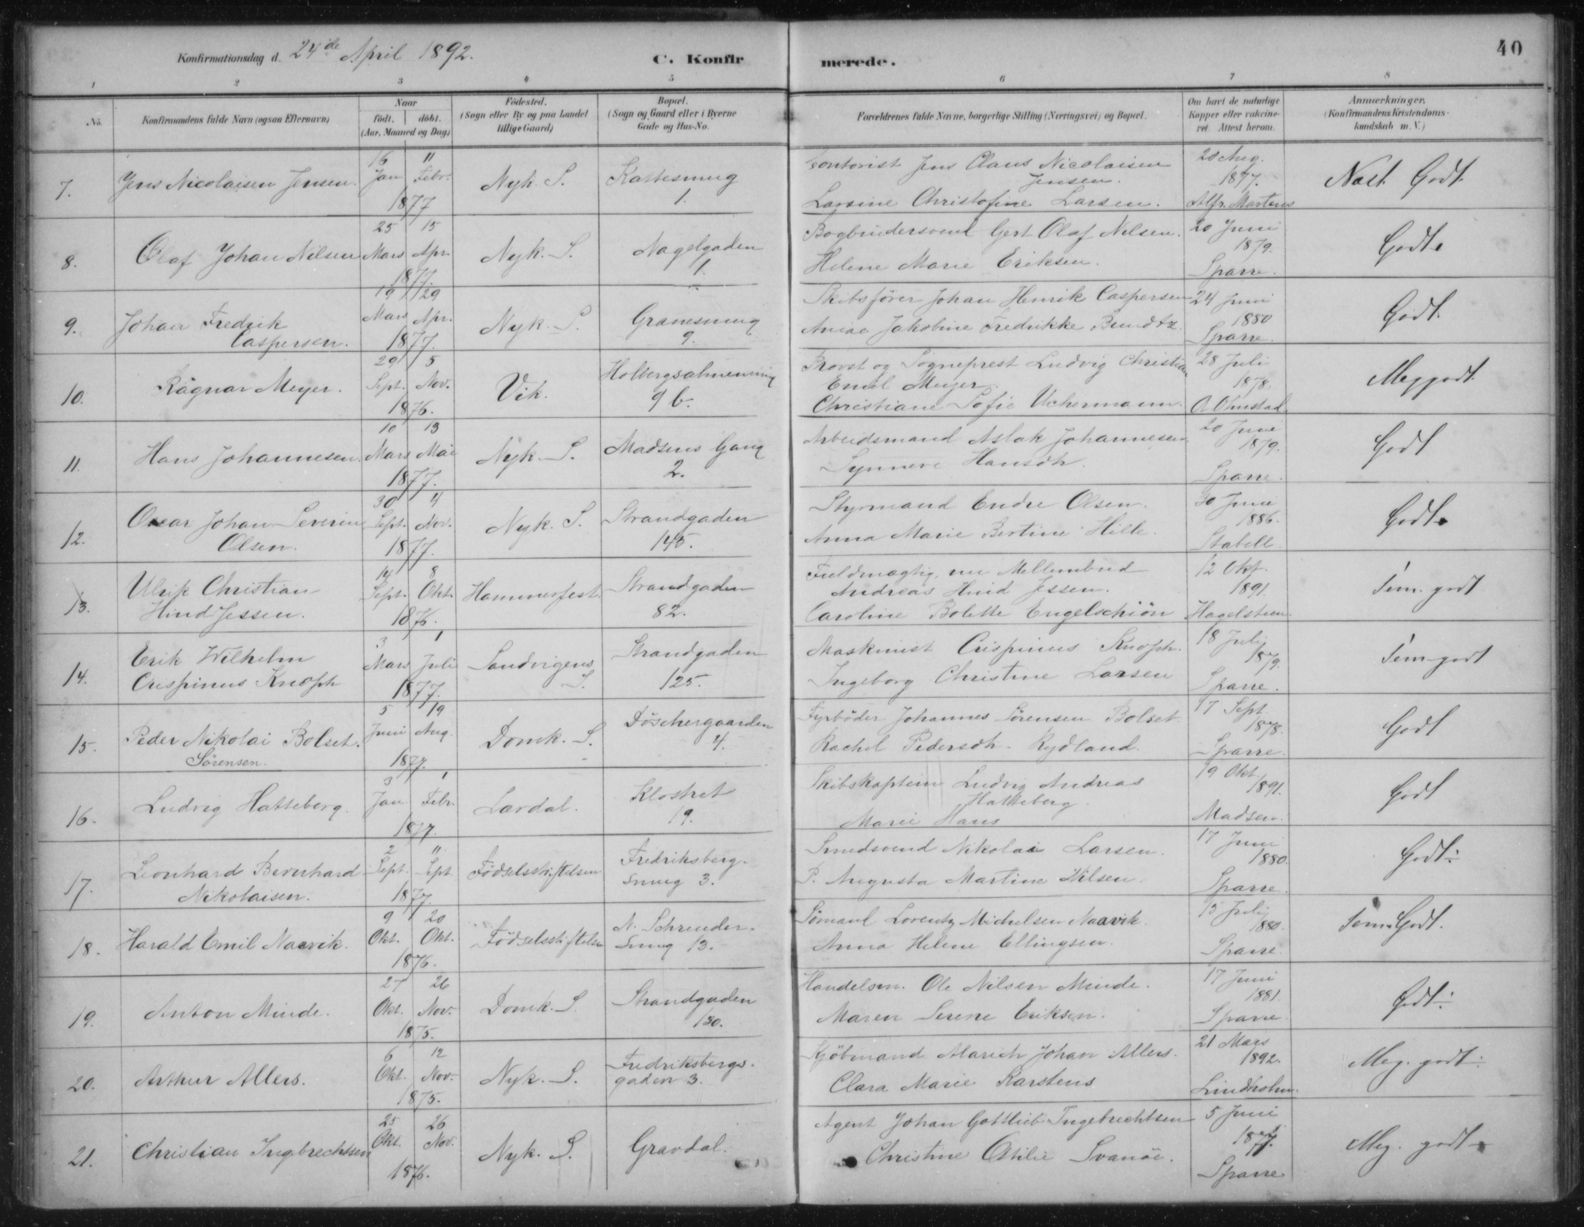 Konfirmationsdag d. 24de April 1892.
C. Konfirmerede.
40
1 2 3 4 5 6 7 8
No. Konfirmandens fulde Navn (ogsaa Efternavn) Naar født. døbt. (Aar, Maaned og Dag) Fødested. (Sogn eller By og paa Landet tillige Gaard) Bopæl. (Sogn og Gaard eller i Byerne Gade og Hus-No. Forældrenes fulde Navne, borgerlige Stilling (Næringsvei) og Bopæl. Om havt de naturlige Kopper eller vakcineret. Attest herom. Anmærkninger. (Konfirmandens Kristendomskundskab m. V.)
7. Jens Nicolaisen Jensen. 16 Jan 11 Febr. 1877 Nyk. S. Kattesmug 1. Contorist Jens Claus Nicolaisen Jensen. Larsine Christofine Larsen. 28 Aug. 1877. Alfr. Martens Godt
8. Olaf Johan Nilsen 25 Mars 15 Apr. 1877 Nyk. S. Nagelgaden 1. Bogbindersvend Gert Olaf Nilsen. Helene Marie Eriksen. 20 Juni 1879. Sparre. Godt.
9. Johan Fredrik Caspersen. 19 Mars 29 Apr. 1877. Nyk. S. Granesmug 9. Skibsfører Johan Henrik Caspersen Jakobine Fredrikke 24 Juni 1880 Sparre. Godt.
10. Ragnar Meyer. 29 Sept. 5 Nov. 1876. Vik. Holbergsalmenning 9 b. Provst og Sogneprest Ludvig Christian Emil Meyer Christiane Sofie Uchermann. 28 Juli 1878. O. Olmstad. Meg godt.
11. Hans Johannesen. 10 Mars 13 Mai 1877. Nyk. S. Madsens Gang 2. Arbeidsmand Aslak Johannesen Synneve Hansdh. 20 June 1879. Sparre. Godt
12. Oscar Johan Severin Olsen. 30 Sept. 4 Nov. 1877. Nyk. S. Strandgaden 145. Styrmand Endre Olsen. Anna Marie Bertine Hille 30 June 1886. Stabell. Godt.
13. Ulrik Christian Hind Jessen. 14 Sept. 8 Okt. 1876. Hammerfest Strandgaden 82. Fuldmægtig, nu Andreas Hind Jessen. Caroline Bolette Engelschiøn 12 Okt. 1891. Hagelsteen. Tem. godt
14. Erik Wilhelm Crispinus Knoph 3 Mars 1 Juli 1877. Sandvigens S. Strandgaden 125. Maskinist Crispinus Knoph. Ingeborg Christine Larsen 18 Juli 1879. Sparre. Tem. godt
15. Peder Nikolai Bolset Sørensen. 5 Juni 19 Aug. 1877. Domk. S. Døschergaarden 4. Fyrbøder Johannes Sørensen Bolset. Rachel Pedersdh. Rydland. 17 Sept. 1878. Sparre. Godt
16. Ludvig Hatteberg. 3 Jan 1 Febr. 1877. Lærdal. Klostret 19. Skibskaptein Ludvig Andreas Hatteberg. Marie Hans 19 Okt. 1891. Madsen. Godt
17. Leonhard Bernhard Nikolaisen. 2 Sept. 11 Sept 1877 Fødselsstiftelsen Fredriksbergsmug 3. Smedsvend Nikolai Larsen. P. Augusta Martine Nilsen. 17 Juni 1880. Sparre. Godt.
18. Harald Emil Naavik. 9 Okt. 20 Okt. 1876. Fødselsstiftelsen N. Schreudersmug 13. Sømand Lorentz Michelsen Naavik. Anna Helene Ellingsen. 15 Juli 1880. Sparre. Tem. Godt.
19. Anton Minde. 27 Okt. 26 Nov. 1875. Domk. S. Strandgaden 130. Handelsm. Ole Nilsen Minde. Maren Serene Eriksen. 17 Juni 1881. Sparre. Godt.
20. Arthur Allers. 6 Okt. 12 Nov. 1875. Nyk. S. Fredriksbergsgaden 3. Kjøbmand Alarich Johan Allers. Clara Marie Karstens 21 Mars 1892. Lindholm. Meg. godt.
21. Christian Ingebrechtsen 25 Okt. 26 Nov. 1876. Nyk. S. Gravdal. Agent Johan Gottlieb Ingebrechtsen Christine Otilie Svanøe. 5 Juni 1877. Sparre Meg. godt.